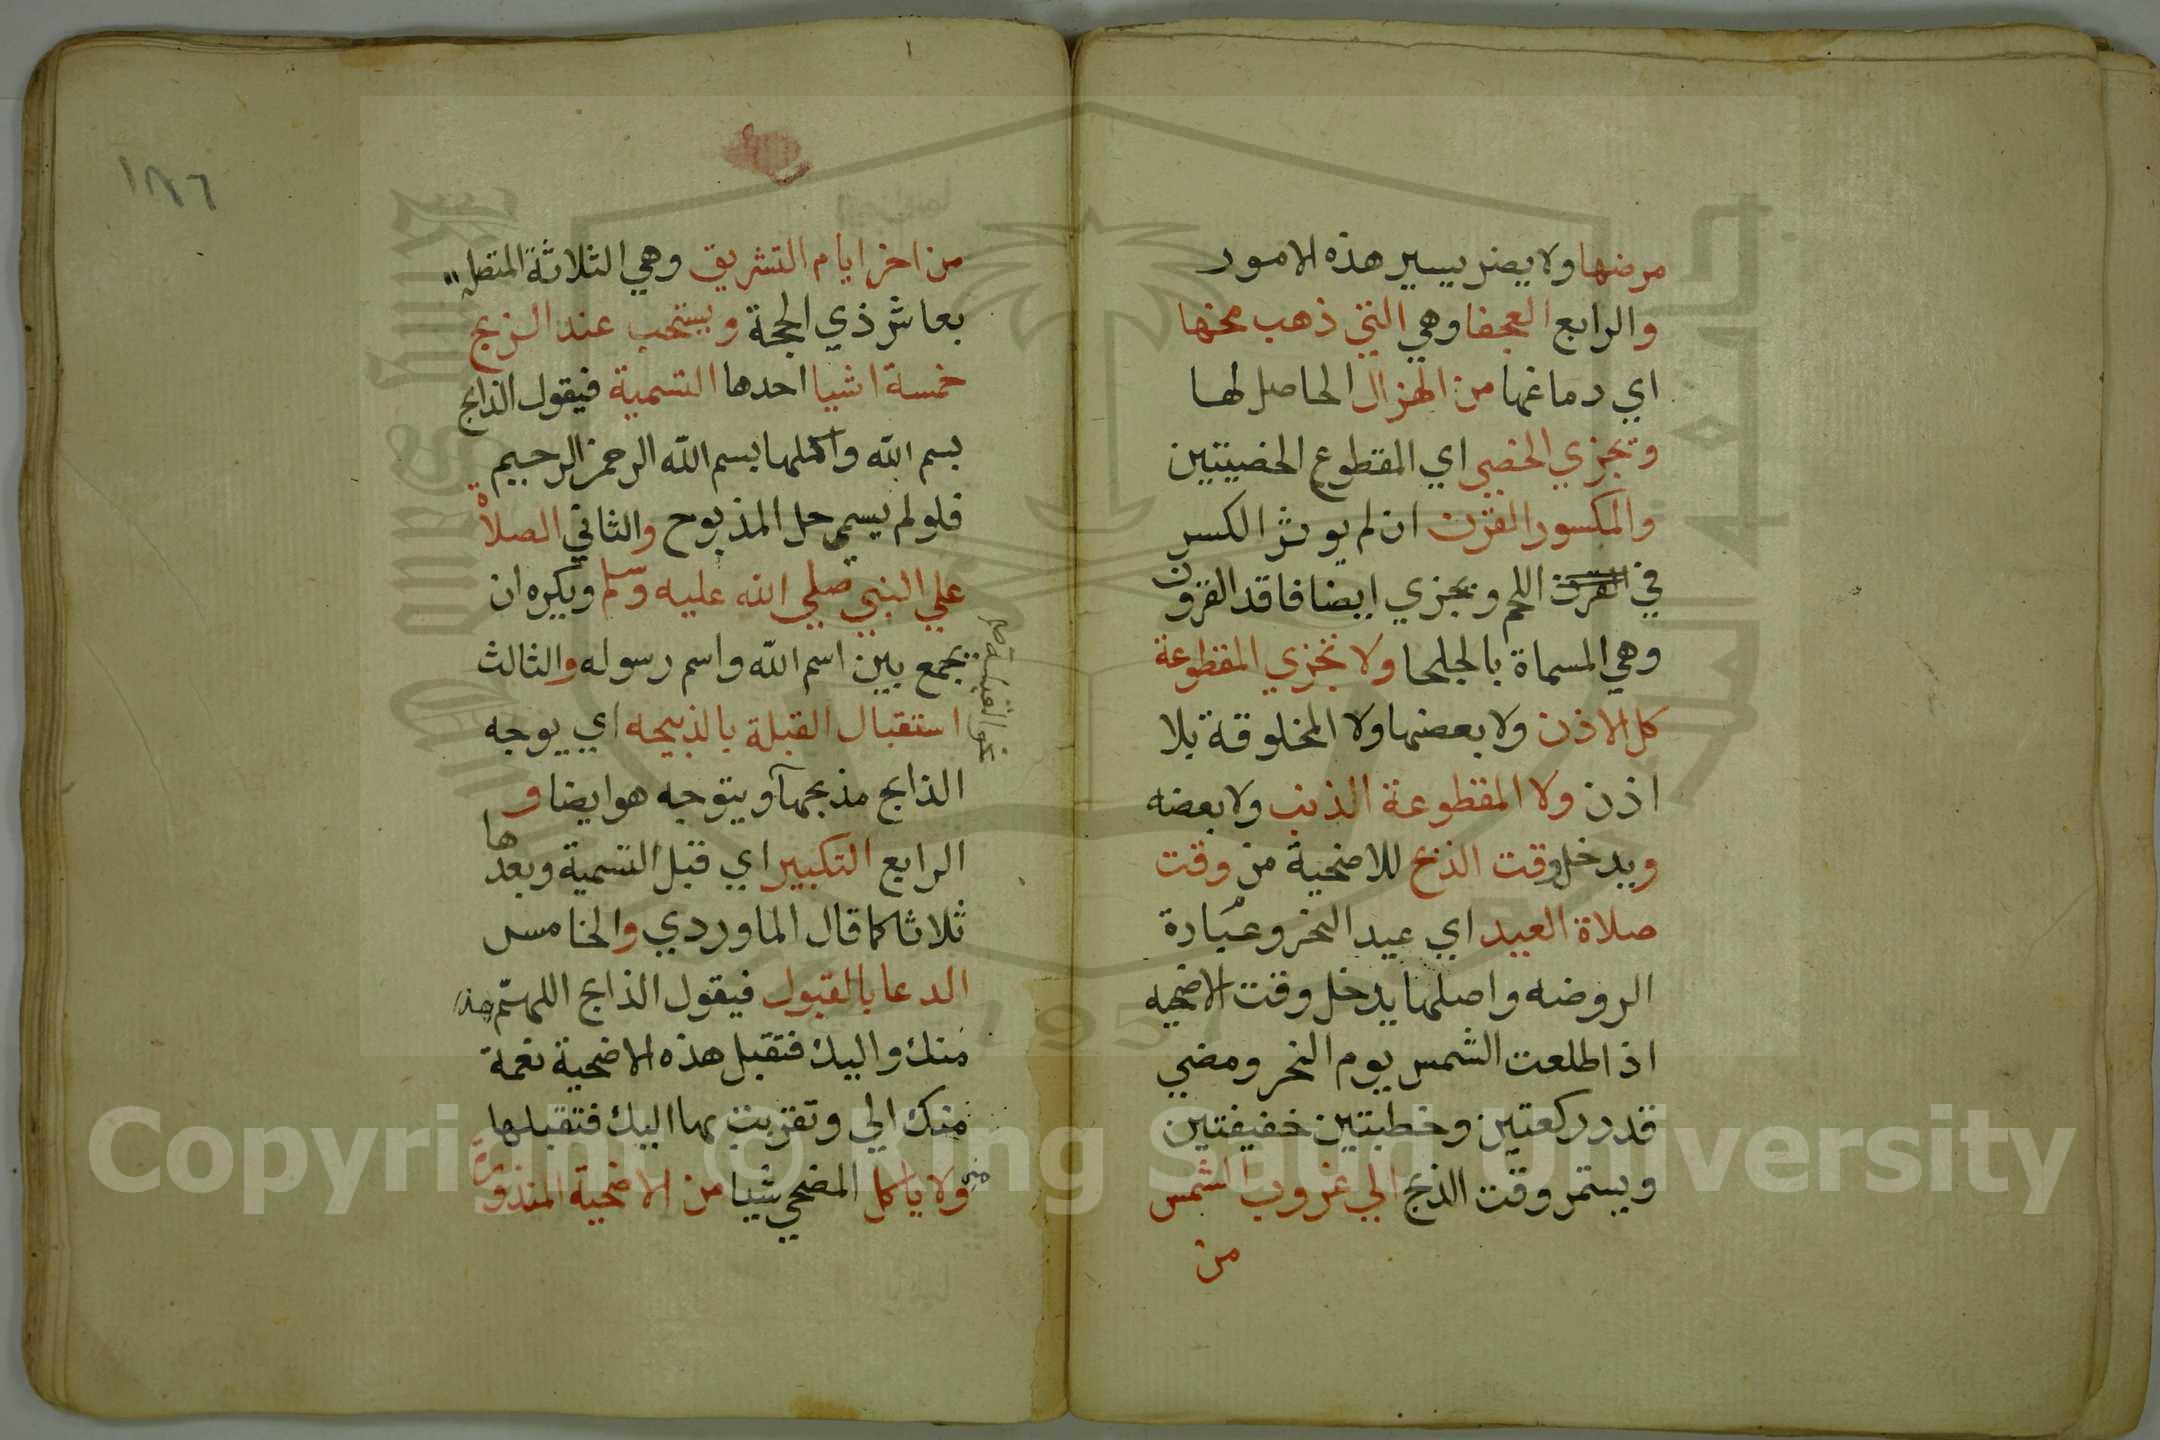 مرضها ولا يضر يسير هذه الامور
والرابع العجفا وهي التي ذهب مخها
اي دماغها من الهزال الحاصل لها
وتجزي الخصي اي المقطوع الخصيتين
والمكسور القرن ان لم يوثر الكسر
في القرن اللحم وتجزي ايضا فاقد القرون
وهي المسماة بالجلحا ولا تجزي المقطوعة
كل الاذن ولا بعضها ولا المخلوقة بلا
اذن ولا المقطوعة الذنب ولا بعضه
ويدخل وقت الذبح للاضحية من وقت
صلاة العيد اي عيد النحر وعبارة
الروضه واصلها يدخل وقت الاضحيه
اذا طلعت الشمس يوم النحر ومضي
قدر ركعتين وخطبتين خفيفتين
ويستمر وقت الذبح الي غروب الشمس
من
١٨٦
من اخر ايام التشريق وهي الثلاثة المتصله
بعاشر ذي الحجة ويستحب عند الذبح
خمسة اشيا احدها التسمية فيقول الذابح
بسم الله واكملها بسم الله الرحمن الرحيم
فلو لم يسم حل المذبوح والثاني الصلاة
علي النبي صلي الله عليه وسلم ويكره ان
يجمع بين اسم الله واسم رسوله والثالث
استقبال القبلة بالذبيحه اي يوجه
الذابح مذبحها ويتوجه هو ايضا و
الرابع التكبير اي قبل التسمية وبعدها
ثلاثا كما قال الماوردي والخامس
الدعا بالقبول فيقول الذابح اللهم هذه
منك واليك فتقبل هذه الاضحية نعمة
منك الي وتقربت بها اليك فتقبلها
مني ولا ياكل المضحي شيا من الاضحية المنذورة
نحو القبلة صح
Copyright © King Saud University
1957